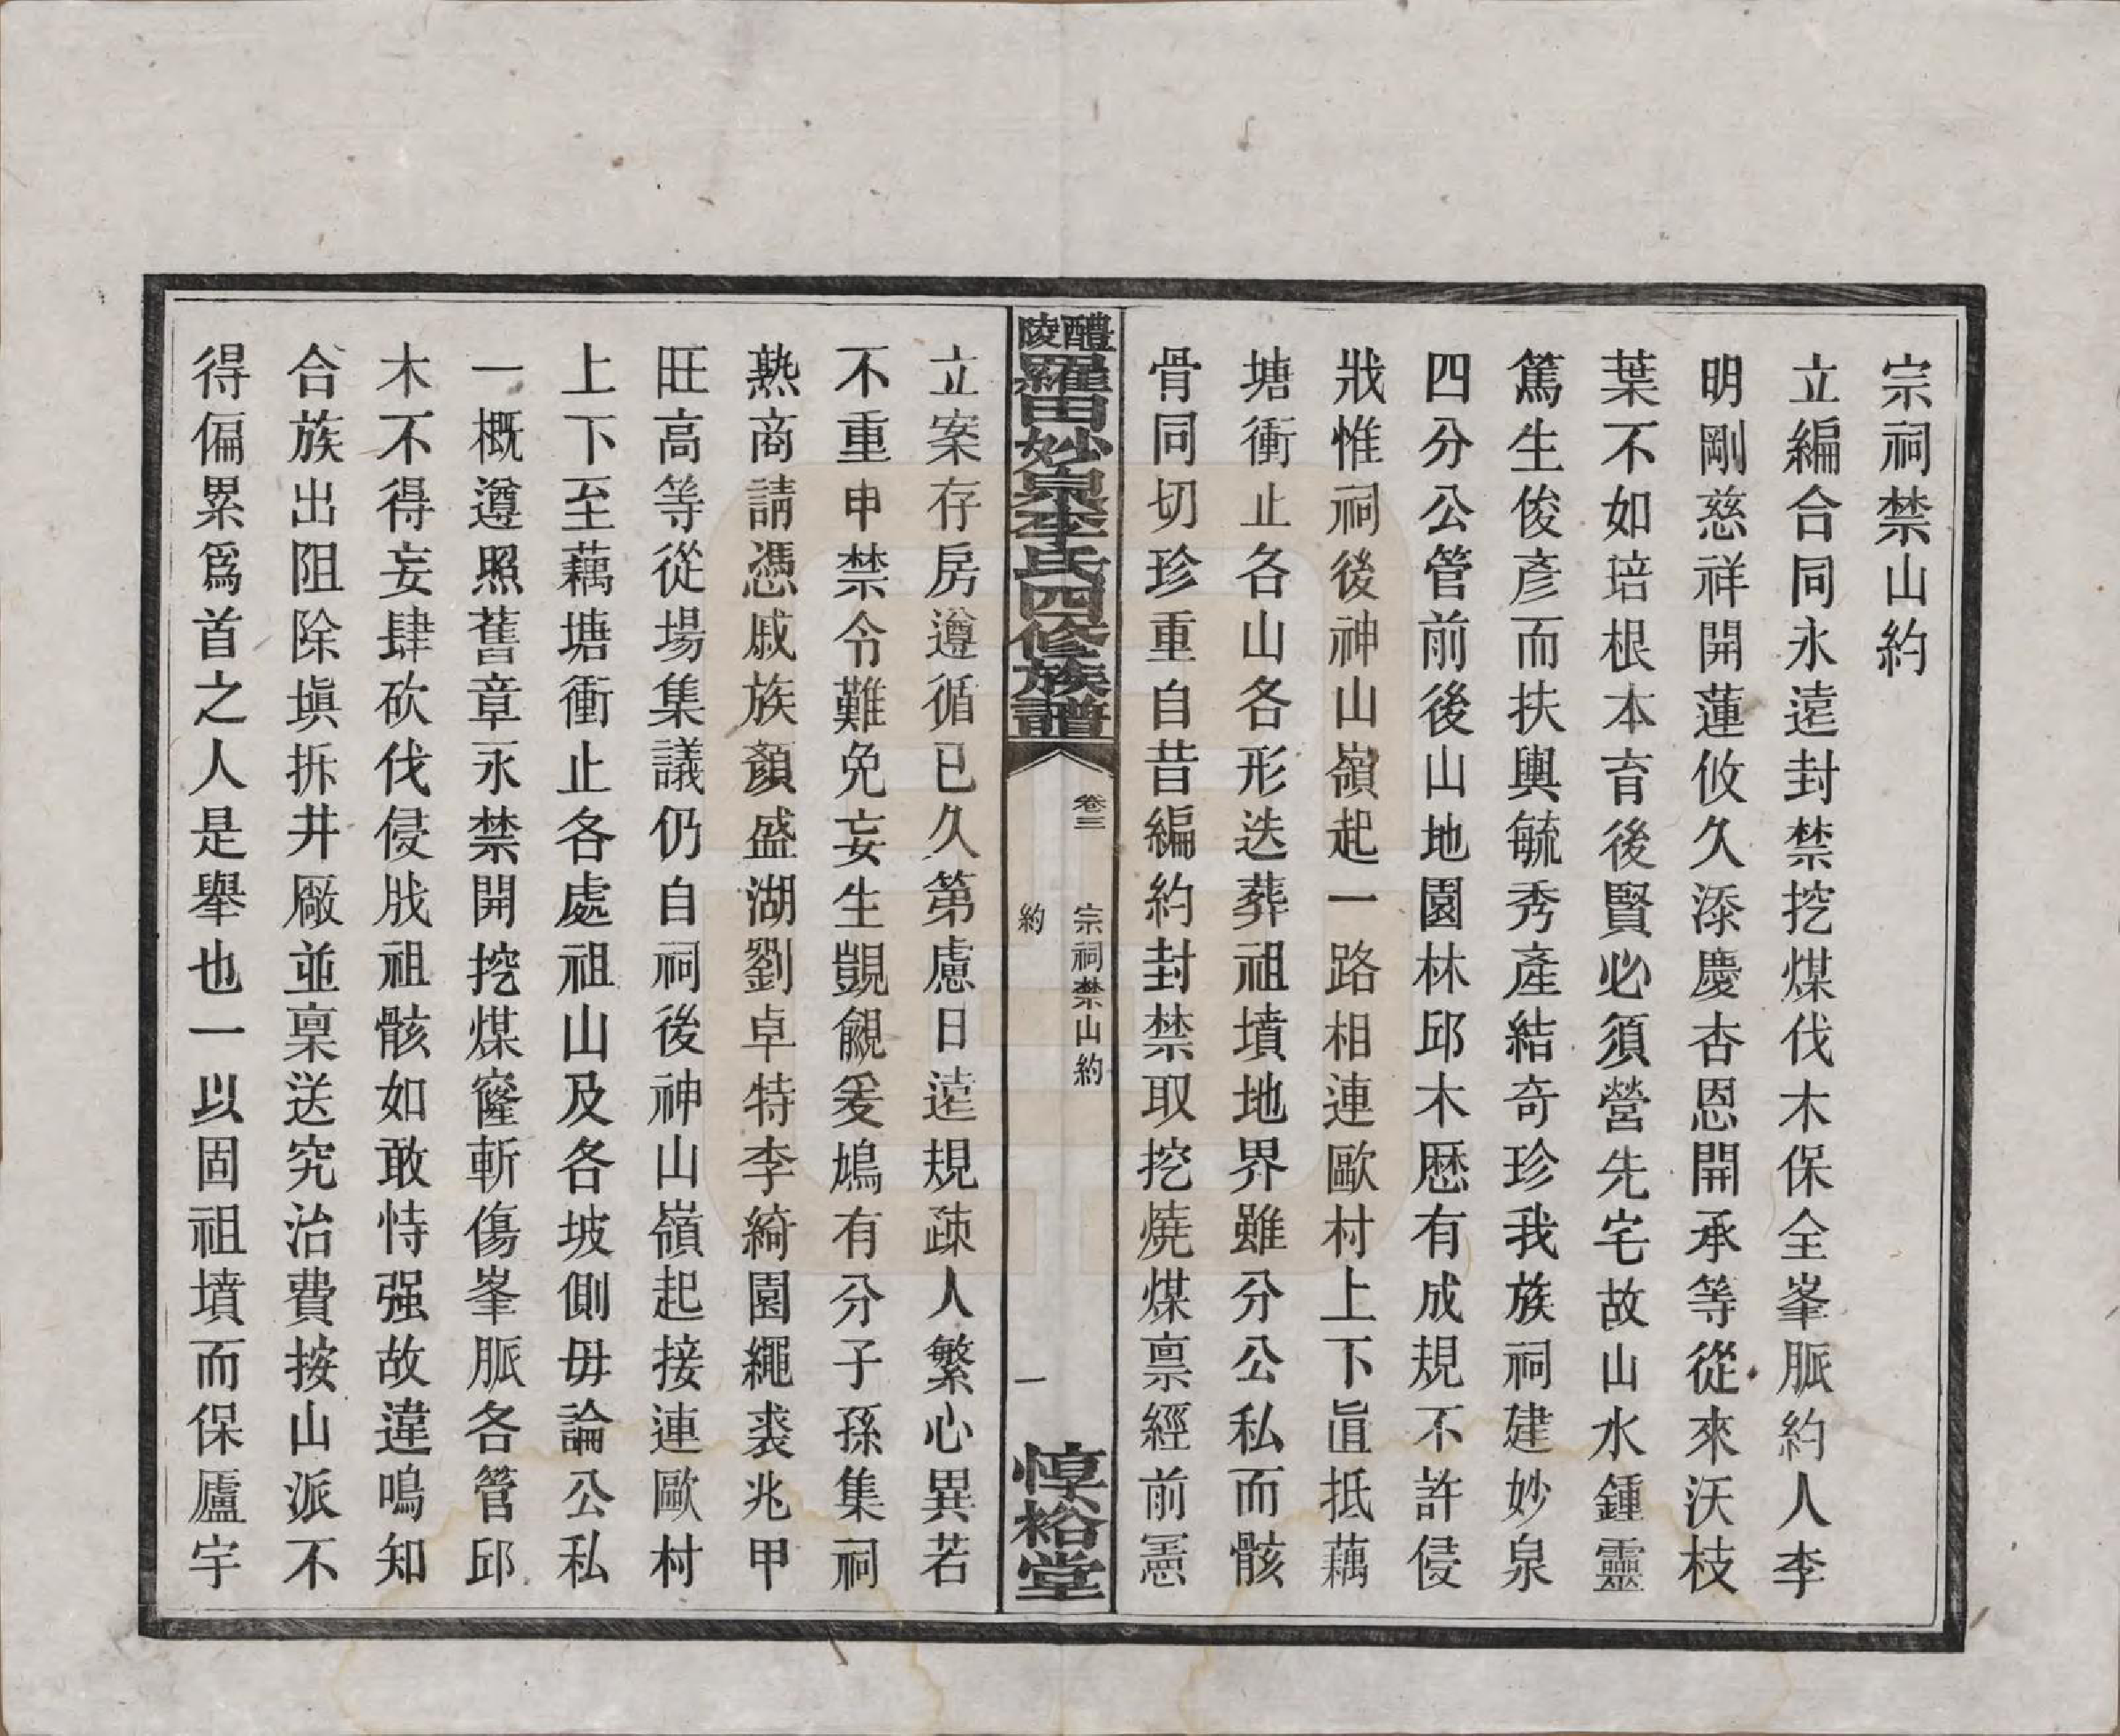 宗祠禁山約
立編合同永遠封禁挖煤伐木保全峯脈約人李
明剛慈祥開蓮攸久添慶杏恩開承等從來沃枝
葉不如培根本育後賢必須營先宅故山水鍾靈
篤生俊彥而扶輿毓秀產結奇珍我族祠建妙泉
四分公管前後山地園林邱木歴有成規不許侵
戕惟祠後神山嶺起一路相連歐村上下直抵藕
塘衝止各山各形迭葬祖墳地界雖分公私而骸
骨同切珍重自昔編約封禁取挖燒煤禀經前憲
醴陵羅田妙泉李氏四修族譜
卷三
宗祠禁山約
約
一
惇裕堂
立案存房遵循已久第慮日遠規疎人繁心異若
不重申禁令難免妄生覬覦爰鳩有分子孫集祠
熟商請憑戚族顏盛湖劉卓特李綺園繩裘兆甲
旺高等從場集議仍自祠後神山嶺起接連歐村
上下至藕塘衝止各處祖山及各坡側毋論公私
一概遵照舊章永禁開挖煤窿斬傷峯脈各管邱
木不得妄肆砍伐侵戕祖骸如敢恃强故違鳴知
合族出阻除塡拆井廠並稟送究治費按山派不
得偏累爲首之人是舉也一以固祖墳而保廬宇